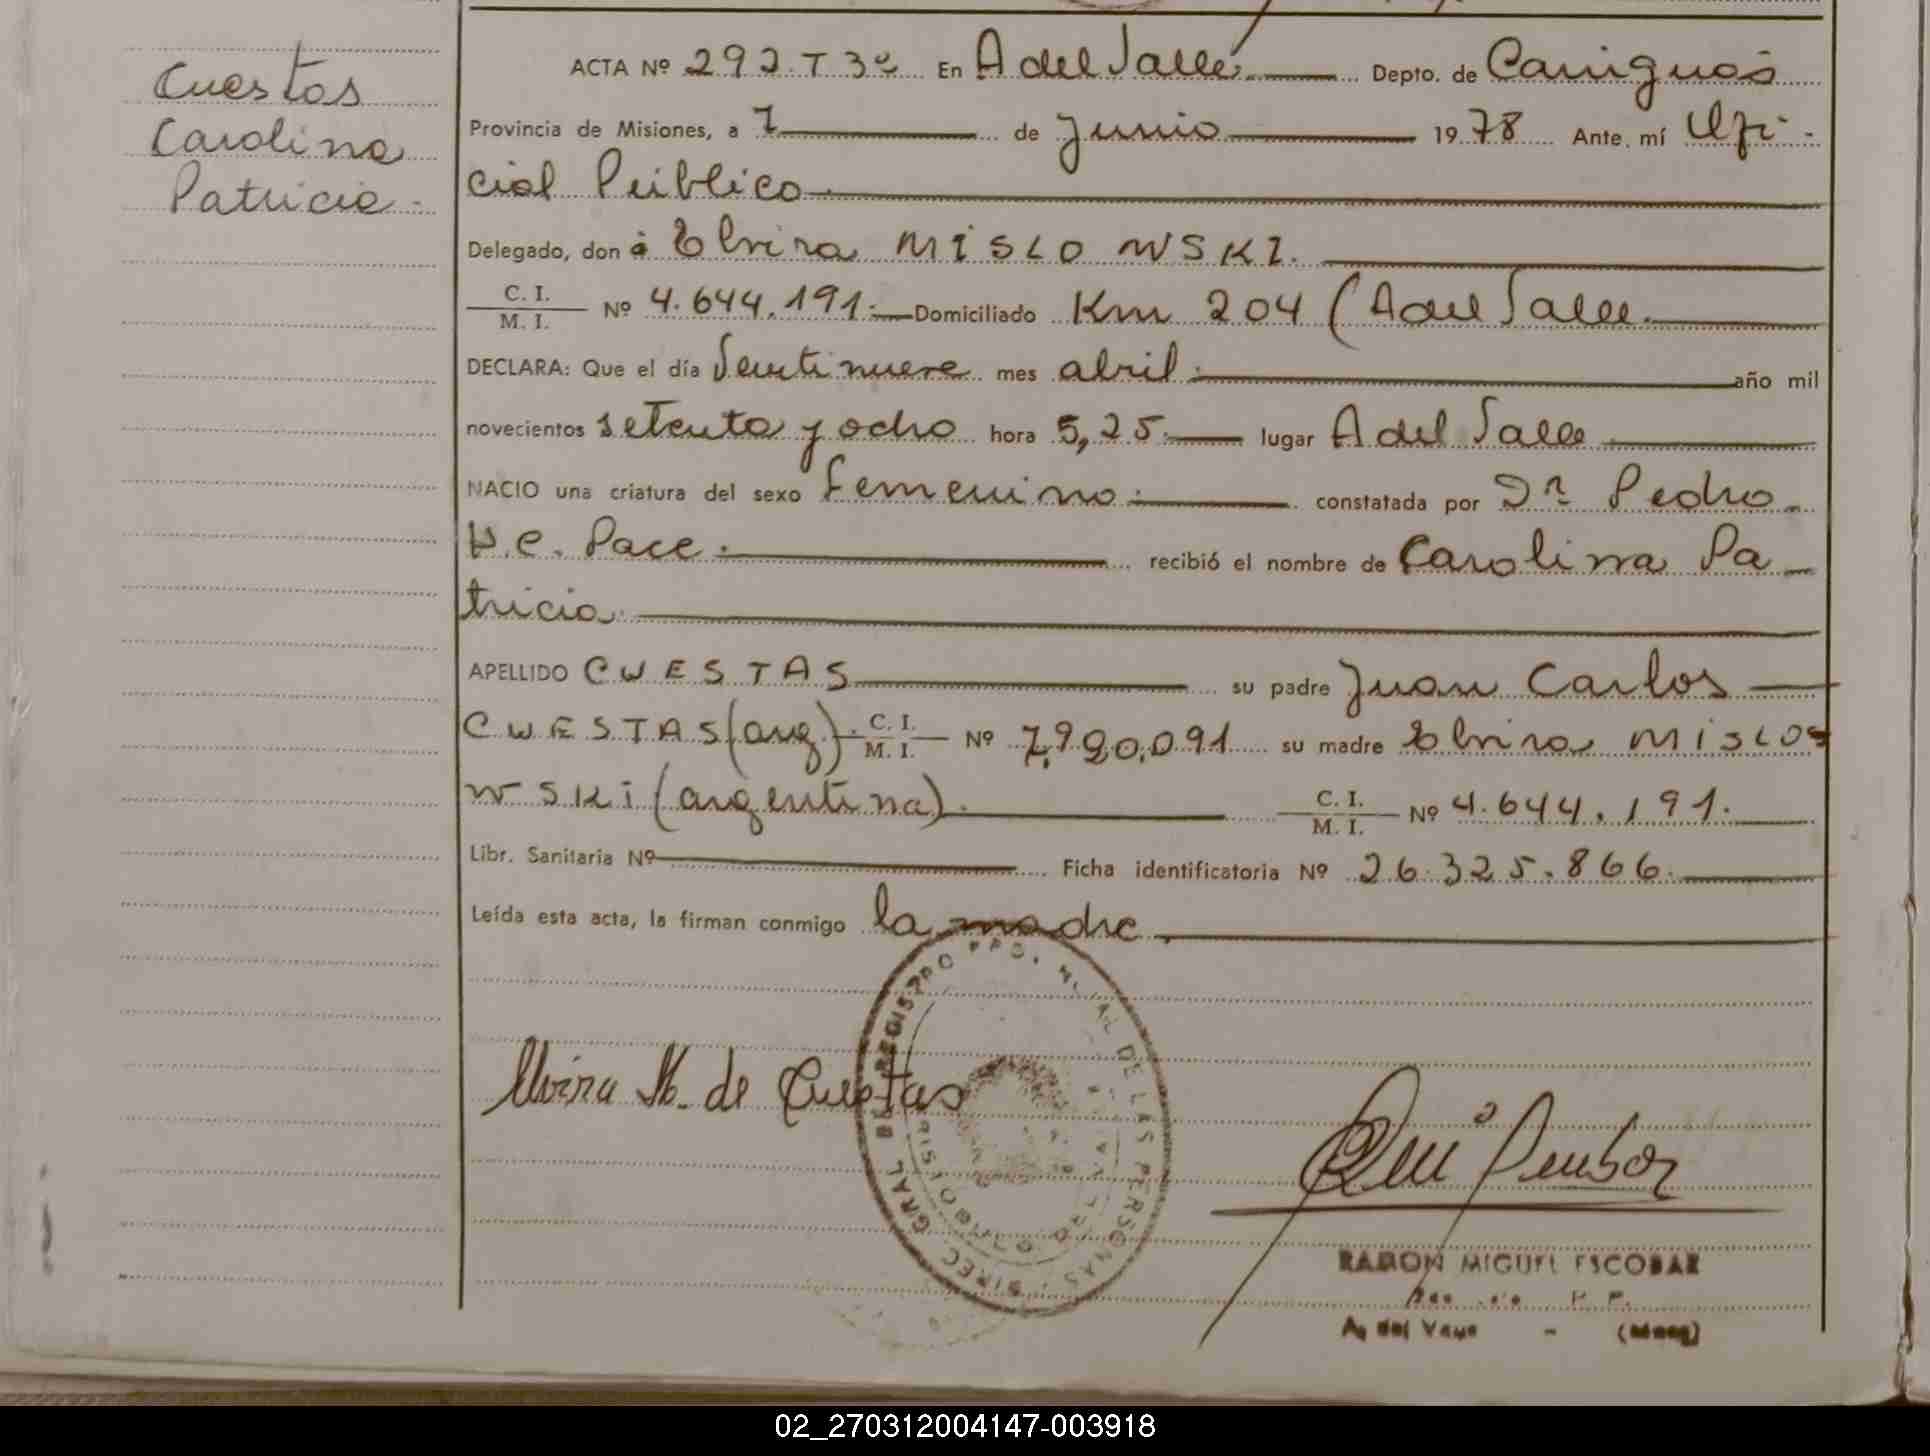 Cuestas
Carolina
Patricia.-
ACTA Nº 292. T 3º En A del Valle. Depto. de Cainguás
Provincia de Misiones, a 7 de Junio 1978 Ante mí Ofi-
cial Público
Delegado, don a Elvira MISLOWSKI.
C. I.
M. I. Nº 4.644.191.- Domiciliado Km 204 (A del Valle.
DECLARA: Que el día Veintinueve mes abril. año mil
novecientos setenta y ocho hora 5,25. lugar A del Valle
NACIO una criatura del sexo femenino. constatada por Dr. Pedro
H.C. Pace. recibió el nombre de Carolina Pa-
tricia.
APELLIDO CUESTAS su padre Juan Carlos
CUESTAS (arg). C. I.
M. I. Nº 7.920.091 su madre Elvira MISLO
WSKI (argentina). C. I.
M. I. Nº 4.644.191.
Libr. Sanitaria Nº Ficha identificatoria Nº 26.325.866.
Leída esta acta, la firman conmigo la madre.
Elvira M. de Cuestas
DIREC. GRAL DEL REGISTRO PRO. DE LAS PERSONAS
RAMON MIGUEL ESCOBAR
A. del Valle - (Mnes)
02_270312004147-003918